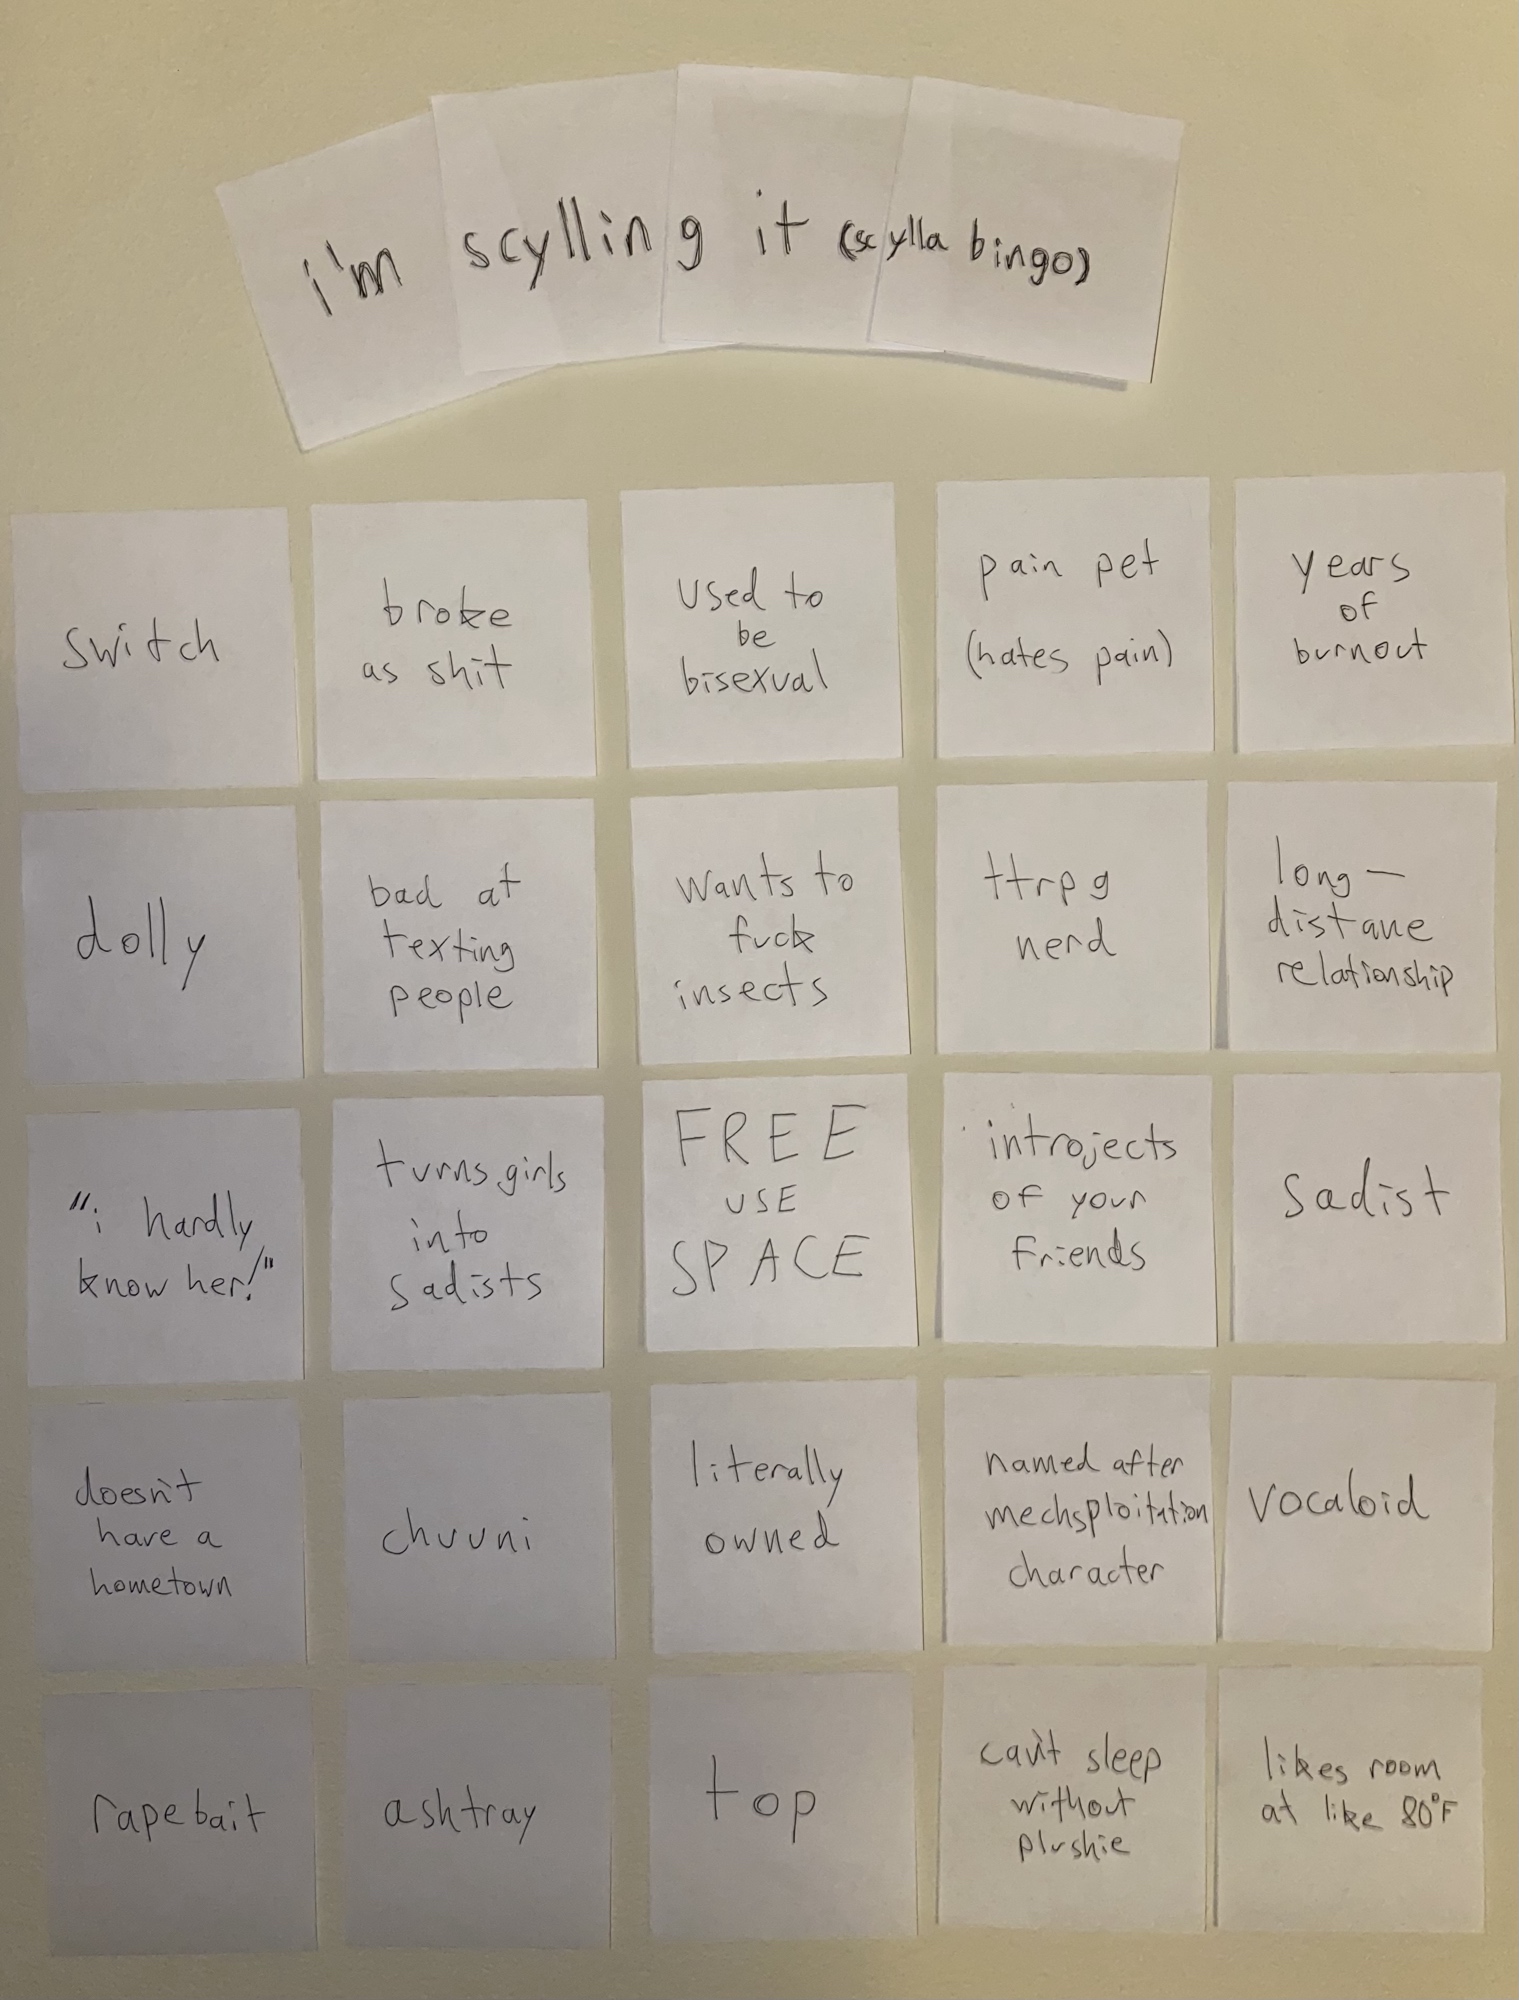 i'm scylling it (scylla bingo)
switch
broke
as shit
used to
be
bisexual
pain pet
(hates pain)
years
of
burnout
dolly
bad at
texting
people
wants to
fuck
insects
ttrpg
nerd
long-
distane
relationship
"i hardly
know her!"
turns girls
into
sadists
FREE
USE
SPACE
introjects
of your
friends
sadist
doesn't
have a
hometown
chuuni
literally
owned
named after
mechsploitation
character
vocaloid
rapebait
ashtray
top
can't sleep
without
plushie
likes room
at like 80°F